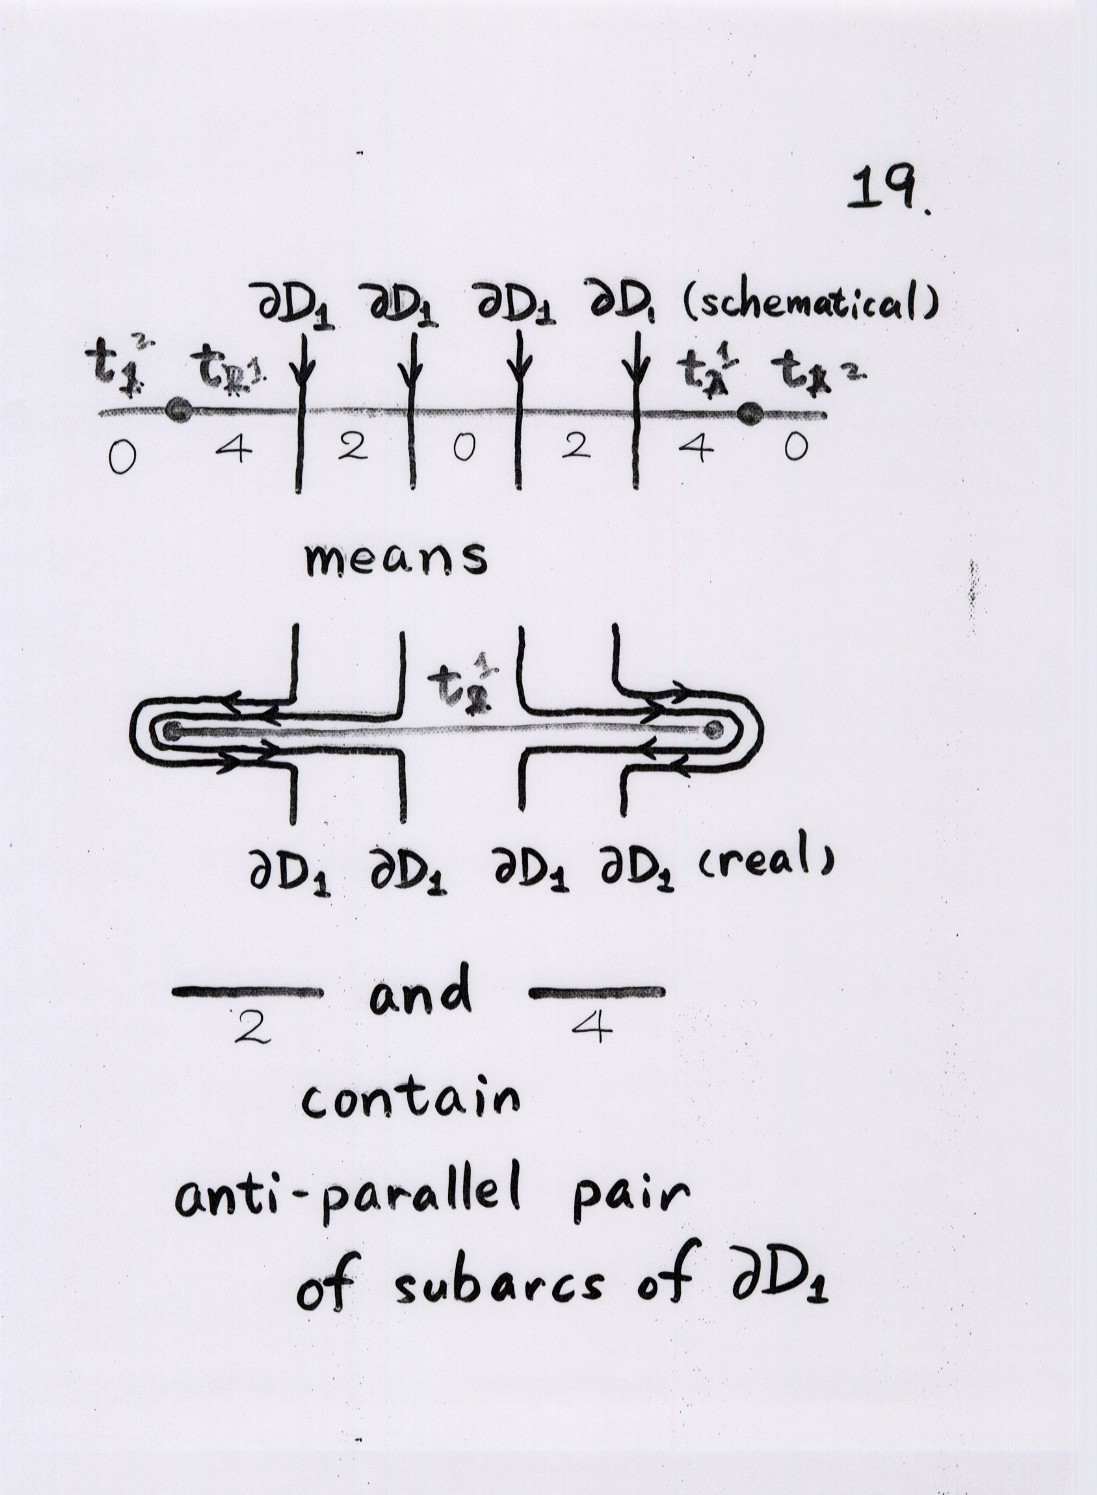 19.
∂D₁ ∂D₁ ∂D₁ ∂D₁ (schematical)
0 4 2 0 2 4 0
means
∂D₁ ∂D₁ ∂D₁ ∂D₁ (real)
and
2 4
contain
anti-parallel pair
of subarcs of ∂D₁